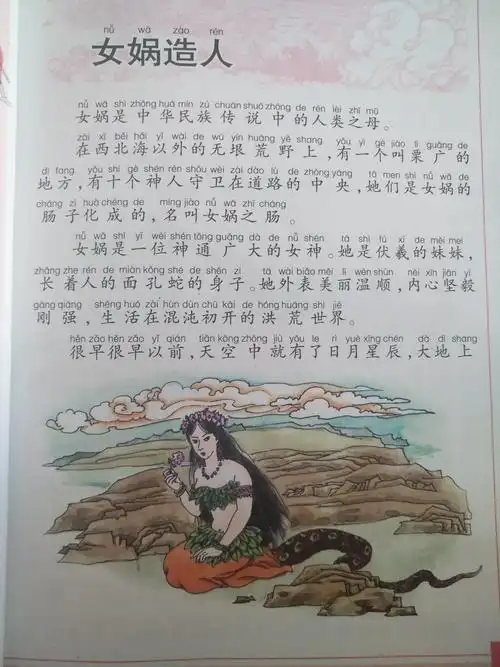 nǚ wā zào rén
女娲造人
nǚ wā shì zhōng huá mín zú chuán shuō zhōng de rén lèi zhī mǔ
女娲是中华民族传说中的人类之母。
zài xī běi hǎi yǐ wài de wú yín huāng yě shang yǒu yí gè jiào lì guǎng de
在西北海以外的无垠荒野上,有一个叫栗广的
dì fang yǒu shí gè shén rén shǒu wèi zài dào lù de zhōng yāng tā men shì nǚ wā de
地方,有十个神人守卫在道路的中央,她们是女娲的
cháng zi huà chéng de míng jiào nǚ wā zhī cháng
肠子化成的,名叫女娲之肠。
nǚ wā shì yí wèi shén tōng guǎng dà de nǚ shén tā shì fú xī de mèi mei
女娲是一位神通广大的女神。她是伏羲的妹妹,
zhǎng zhe rén de miàn kǒng shé de shēn zi tā wài biǎo měi lì wēn shùn nèi xīn jiān yì
长着人的面孔蛇的身子。她外表美丽温顺,内心坚毅
gāng qiáng shēng huó zài hùn dùn chū kāi de hóng huāng shì jiè
刚强,生活在混沌初开的洪荒世界。
hěn zǎo hěn zǎo yǐ qián tiān kōng zhōng jiù yǒu le rì yuè xīng chén dà dì shang
很早很早以前,天空中就有了日月星辰,大地上